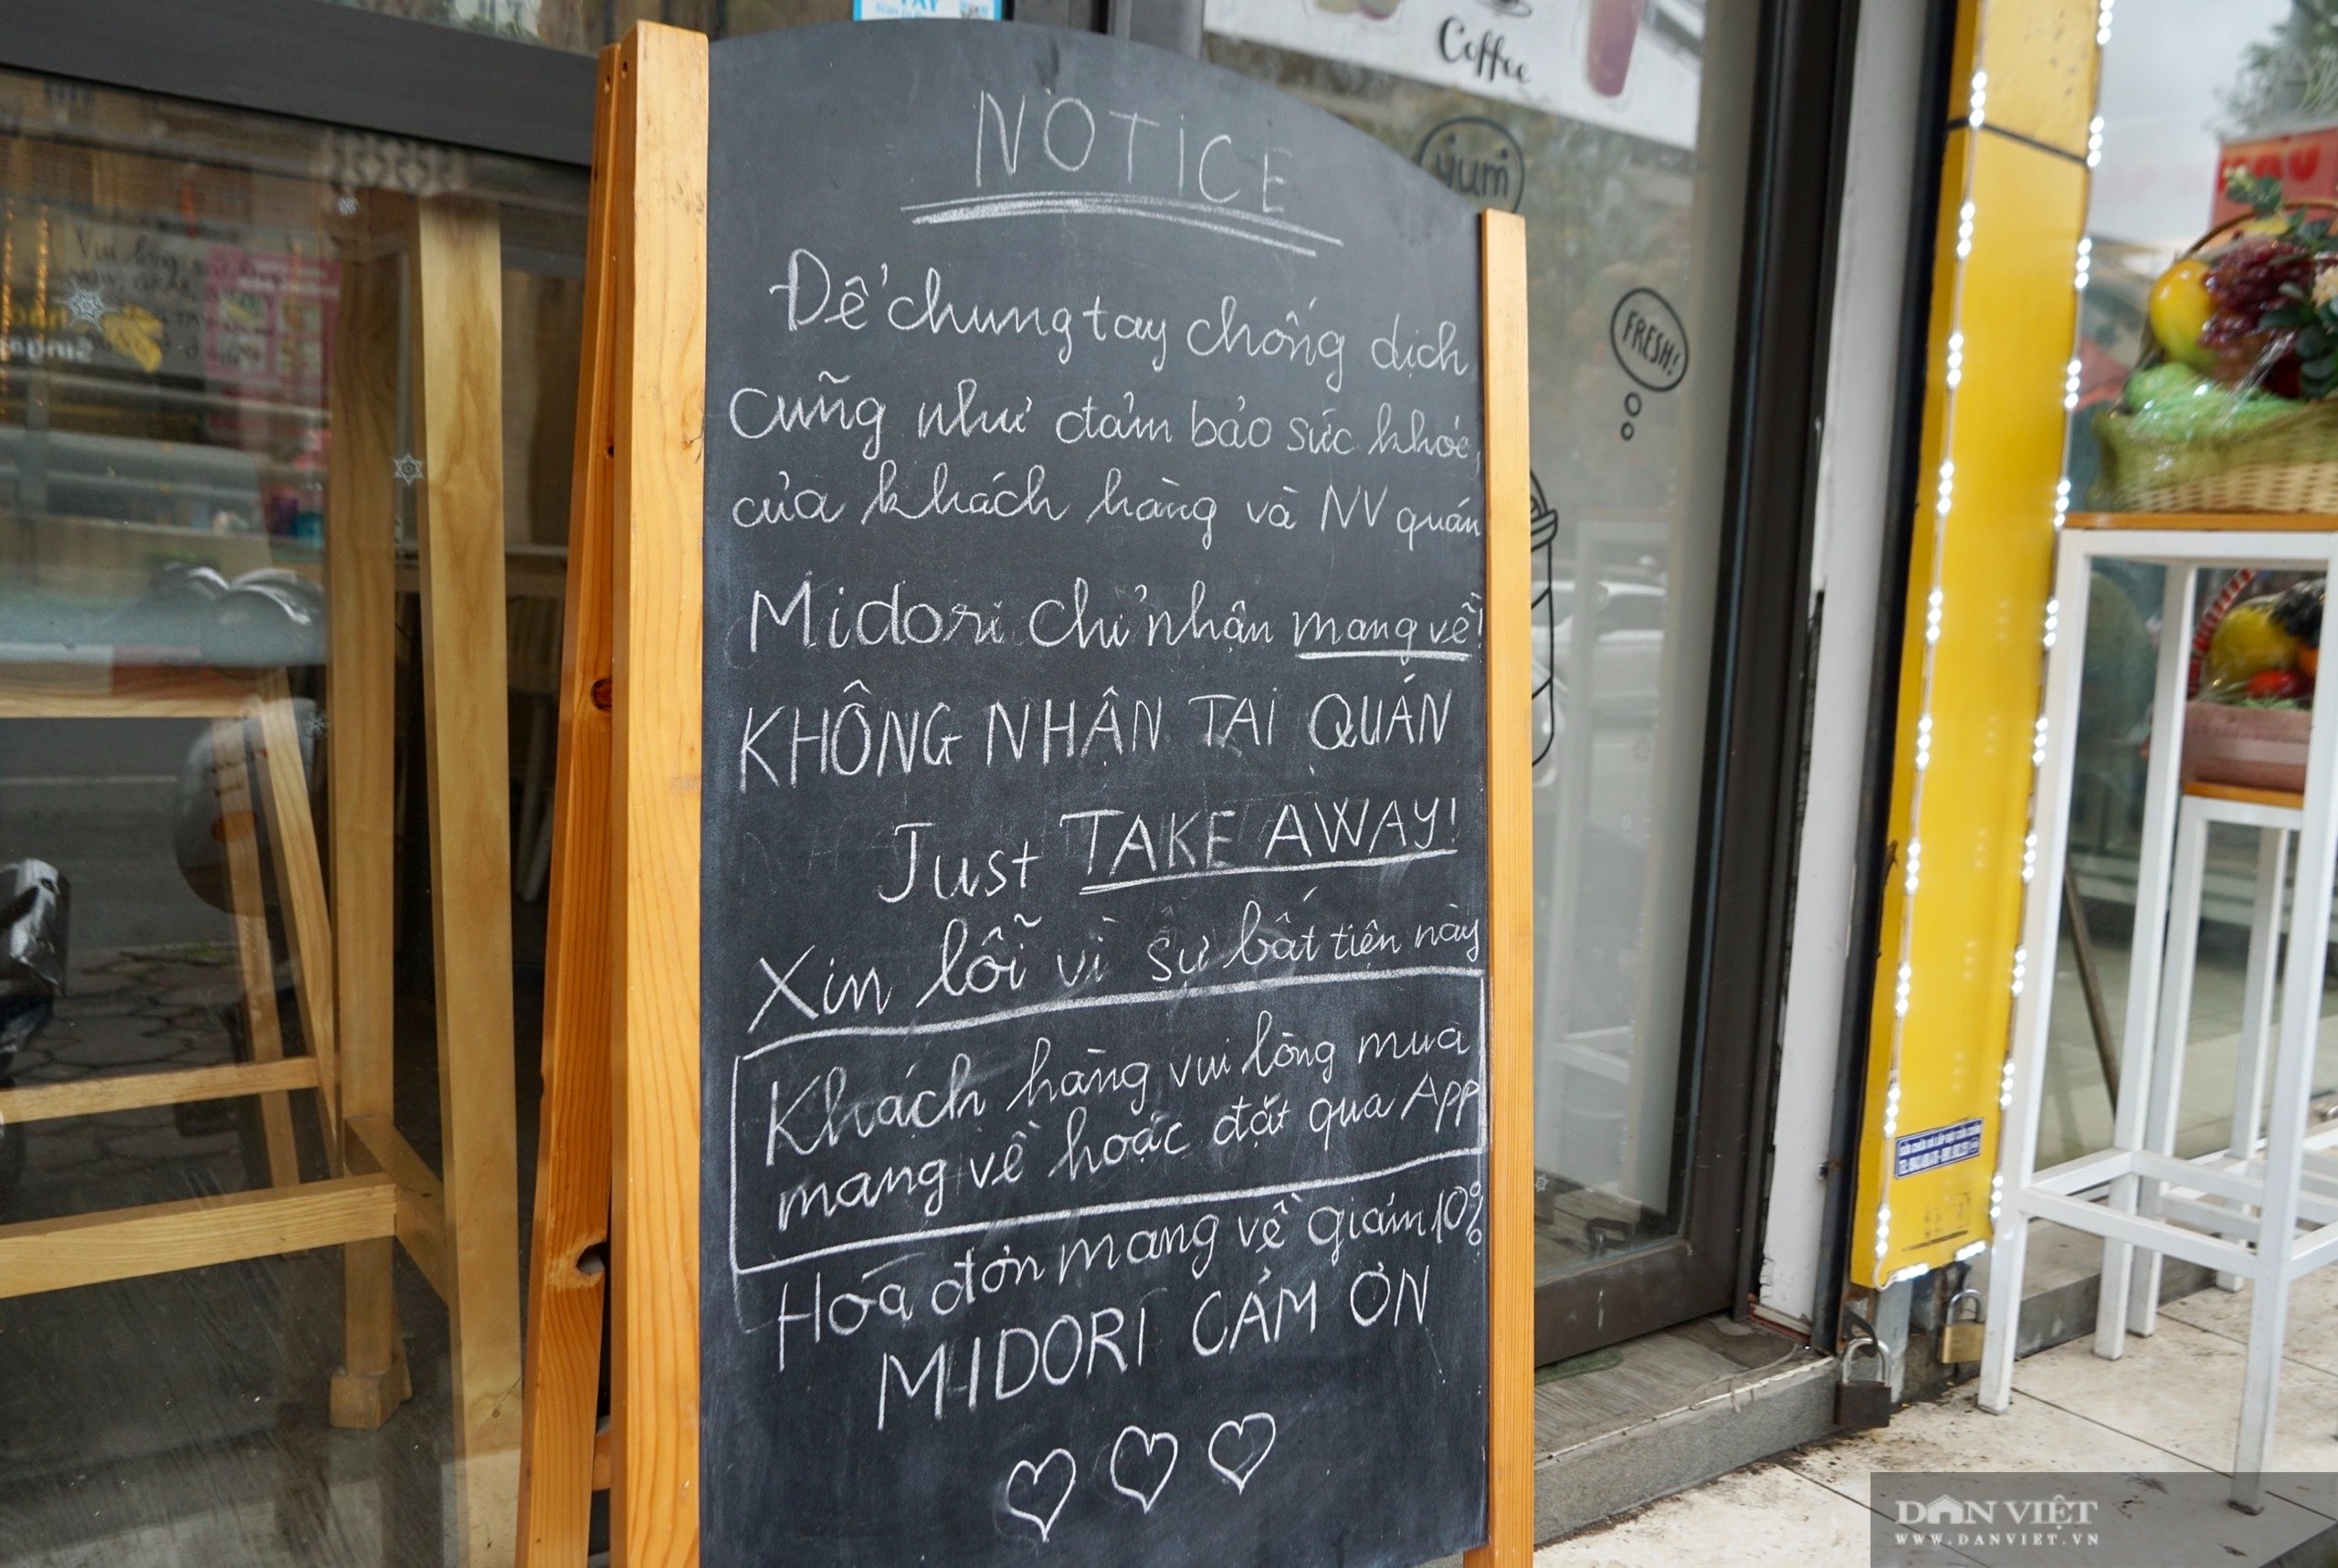 Coffee
NOTICE
yum
Để chung tay chống dịch
FRESH!
cũng như đảm bảo sức khỏe,
của khách hàng và NV quán
Midori chỉ nhận mang về!
KHÔNG NHẬN TẠI QUÁN
Just TAKE AWAY!
Xin lỗi vì sự bất tiện này
Khách hàng vui lòng mua
mang về hoặc đặt qua App
Hóa đơn mang về giảm 10%
MIDORI CẢM ƠN
DÂN VIỆT
WWW.DANVIET.VN